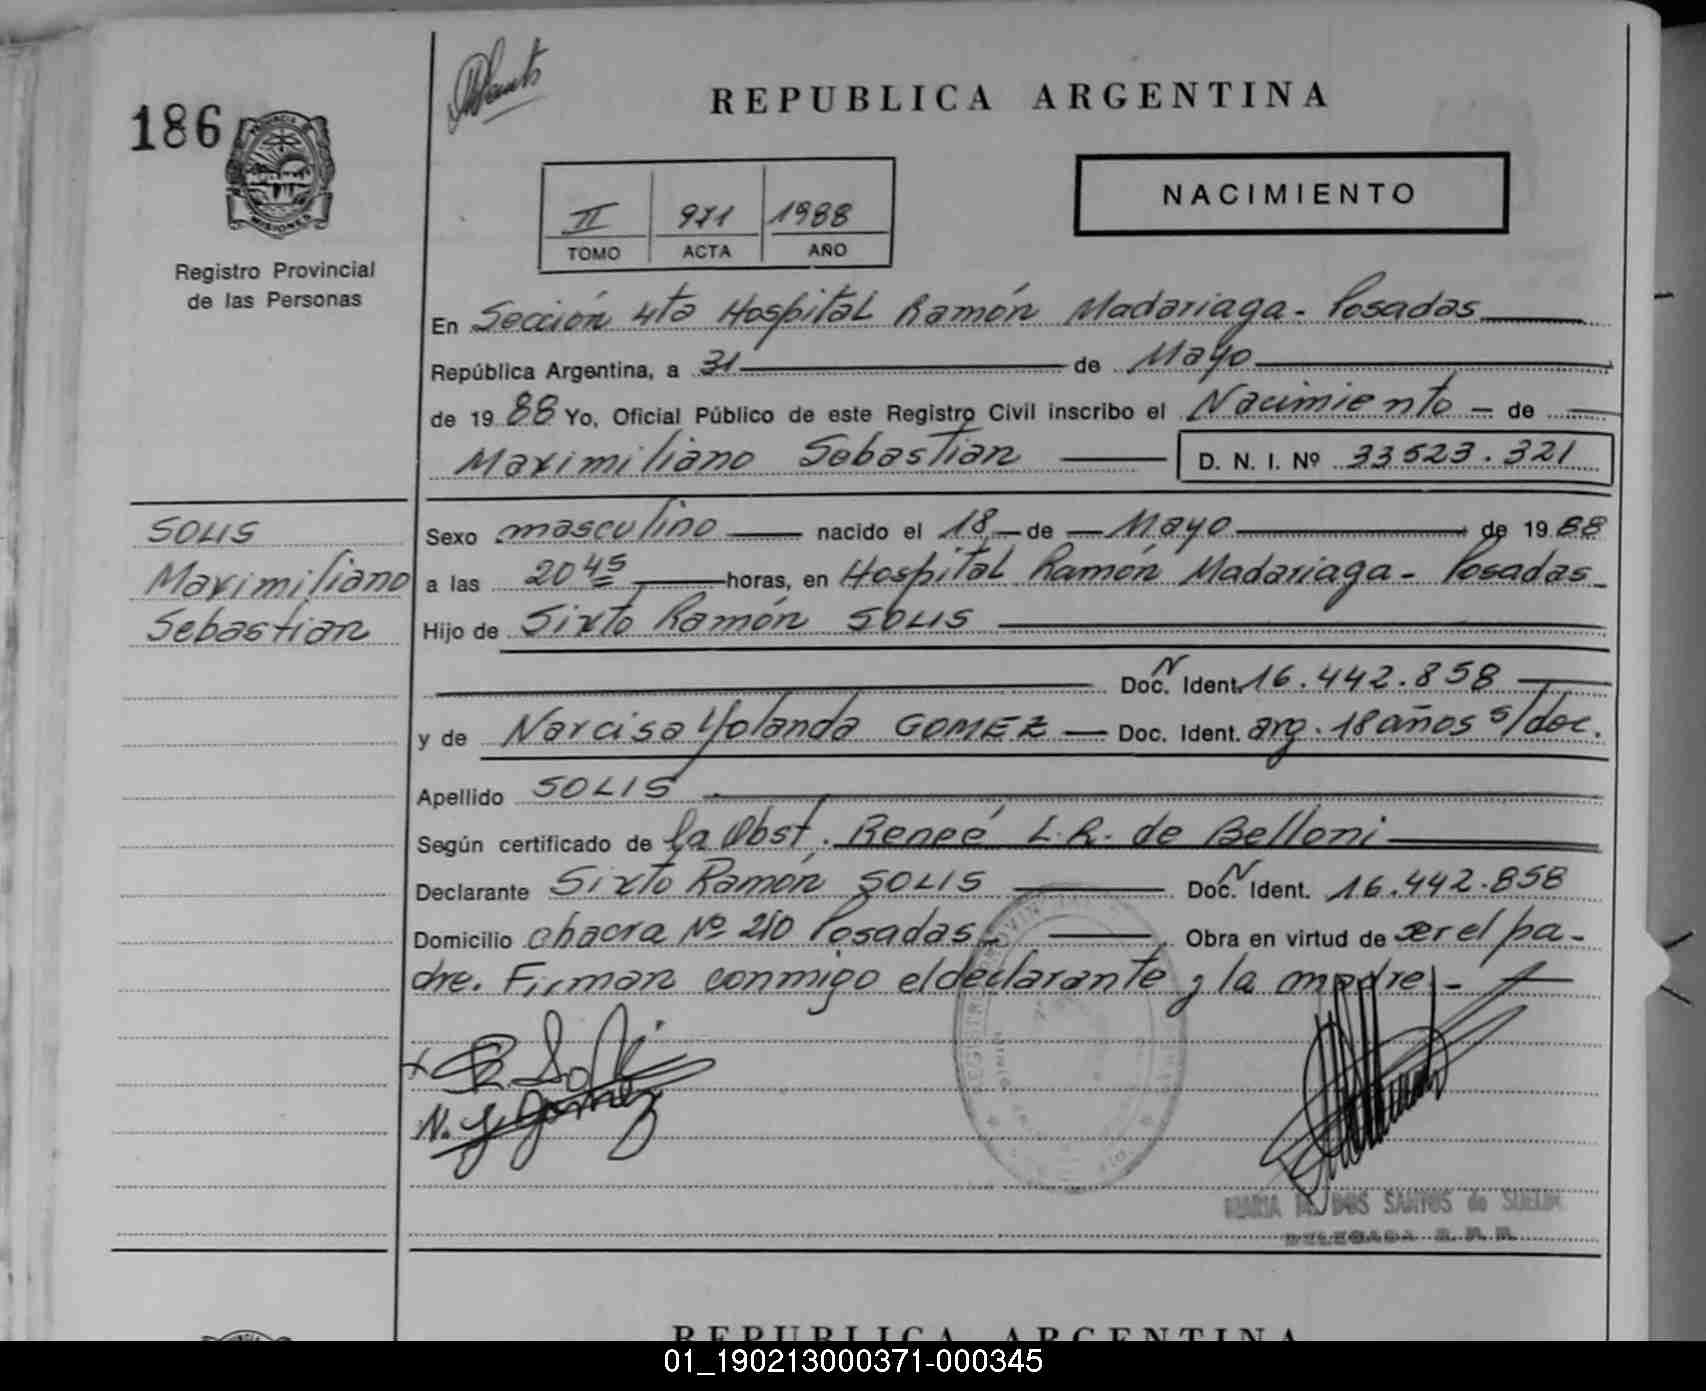 186
REPUBLICA ARGENTINA
NACIMIENTO
II 971 1988
TOMO ACTA AÑO
PROVINCIA DE
MISIONES
Registro Provincial
de las Personas
En Sección 4ta Hospital Ramón Madariaga - Posadas
República Argentina, a 31 de Mayo
de 1988 Yo, Oficial Público de este Registro Civil inscribo el Nacimiento - de
Maximiliano Sebastian D. N. I. Nº 33523.321
SOLIS
Maximiliano
Sebastian
Sexo masculino nacido el 18 - de - Mayo de 1988
a las 20 45 horas, en Hospital Ramón Madariaga - Posadas -
Hijo de Sixto Ramón SOLIS
Doc. N Ident. 16.442.858
y de Narcisa Yolanda GOMEZ - Doc. Ident. arg. 18 años s/doc.
Apellido SOLIS
Según certificado de la Obst. Reneé L.R. de Belloni
Declarante Sixto Ramón SOLIS Doc. N Ident. 16.442.858
Domicilio chacra Nº 210 Posadas - Obra en virtud de ser el pa-
dre. Firman conmigo el declarante y la madre -
R. Solis
N. Y. Gomez
MARIA DOS SANTOS de
DELEGADA R. P. P.
REPUBLICA ARGENTINA
01_190213000371-000345